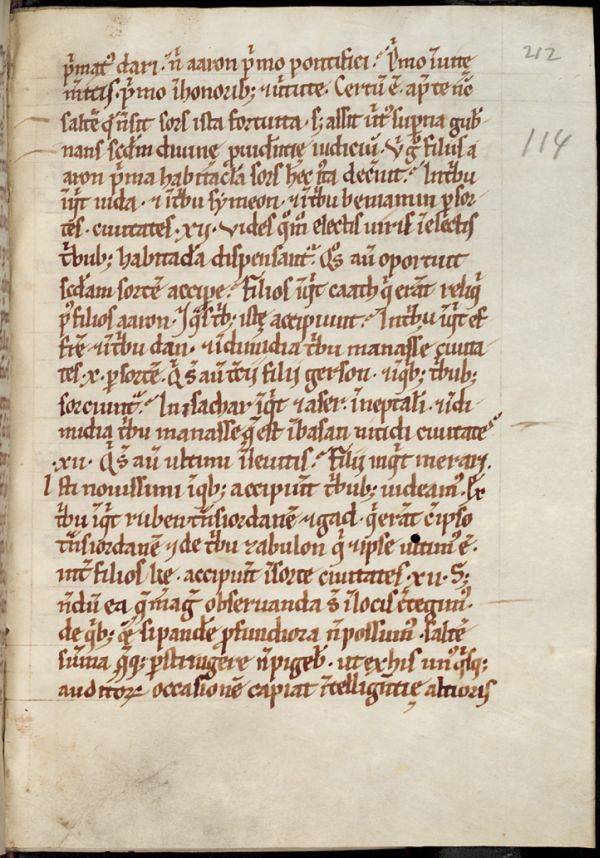 212
114
p̄mat᷒ dari · n̄ aaron p̄mo pontifici · P̄mo īuite
m̄itis · p̄mo ī honorib; · ⁊ ūtute · Certū ē · ap te nc̄
saltē q̄ n̄ sit sors ista fortuita · s; assit ūt᷒ supna gub̄
nans scd̄m diuinę ꝓuid̄ntię iudiciū ·
aaron p̄ma habitacl̄a sors hęc īta dec̄nit · In tbu
īq̄t iuda · ⁊ ī tbu symeon · ⁊ ī tbu beniamin p sor
tes · ciuitates · xiı · Vides qm̄ electis uiris ī electis
tbub; habitacl̄a dispensant᷑ · Q̄s aū oportuit
scd̄am sortē accipe · Filios īq̄t caath q̄ erāt reliq̄
p᷒ filios aaron · Iq̄s tb; istę accipiunt · In tbu īq̄t ef
frē · ⁊ ī tbu dan · ⁊ ī dimidia tbu manasse ciuita
tes · x · p sortē · Q̄s aū t̄cii filii gerson · ⁊ ī q̄b; tbub;
sorciunt᷑ · In isachar īq̄t ⁊ aser · ī neptali · ⁊ ī di
midia tbu manasse q̄ est ī basan ciuitate᷒
· xii · Q̄s aū ultimi ī leuitis · Filii inq̄t merari ·
Isti nouissimi ī q̄b; accipiunt tbub; uideam᷒ · Ex
tbu īq̄t ruben tn̄siordanē ⁊ gad · q̄ erāt c̄ ipso
tn̄siordanē ⁊ de tbu zabulon q̄ ⁊ ipse ultim᷒ ē ·
int̄ filios lie · accipiunt ī sorte ciuitates · xii · S;
n̄dū ea q̄ maḡ obseruanda s̄ ī locis c̄tegim᷒ ·
de q̄b; q̄ si pandere ꝓfundiora n̄ possum᷒ · saltē
sūma q̄q; pstringere n̄ pigeb̄ · ut ex his un᷒q̄sq;
auditor᷑ occasionē capiat ītellign̄tię altioris